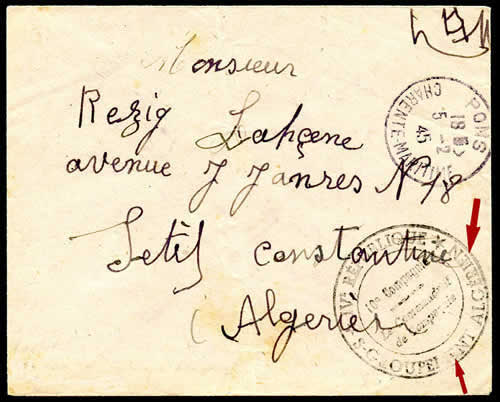 Monsieur
Rezig Lahçene
avenue J Janres N 18
Setif Constantine
(Algerie)
PONS
18
5 -2
45
CHARENTE-MARITIME
IVe REPUBLIQUE
10e Compagnie
Le Commandant
de Compagnie